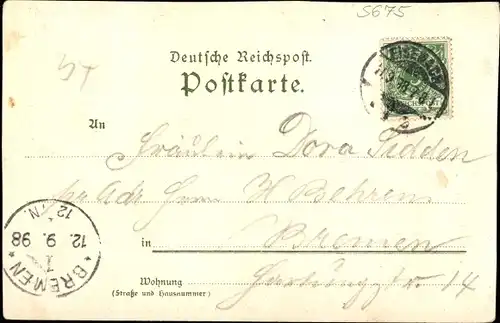 S675
Deutsche Reichspost.
Postkarte.
An
Fräulein Dora Sidden
pr. Adr. Herrn H Behrens
in Bremen
Wohnung 14
(Straße und Hausnummer)
BREMEN
1
12. 9. 98
12-1N.